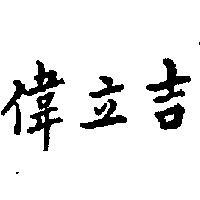 偉立吉